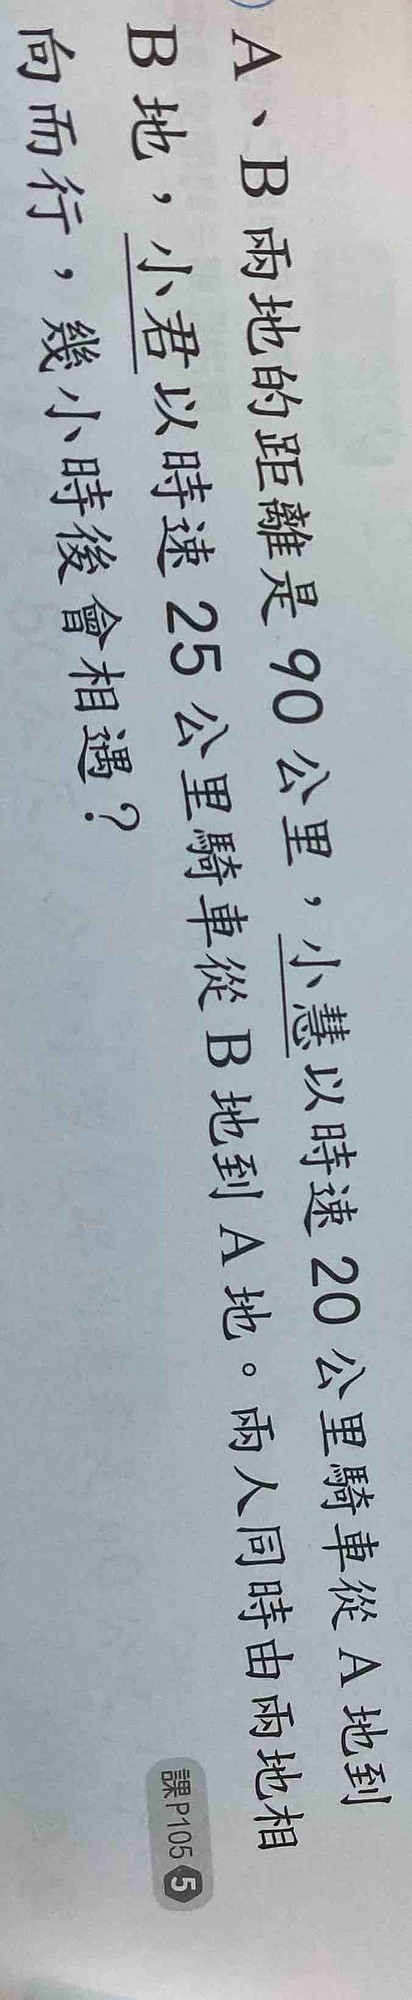 A、B兩地的距離是90公里，小慧以時速20公里騎車從A地到
B地，小君以時速25公里騎車從B地到A地。兩人同時由兩地相
向而行，幾小時後會相遇？
課P105 5